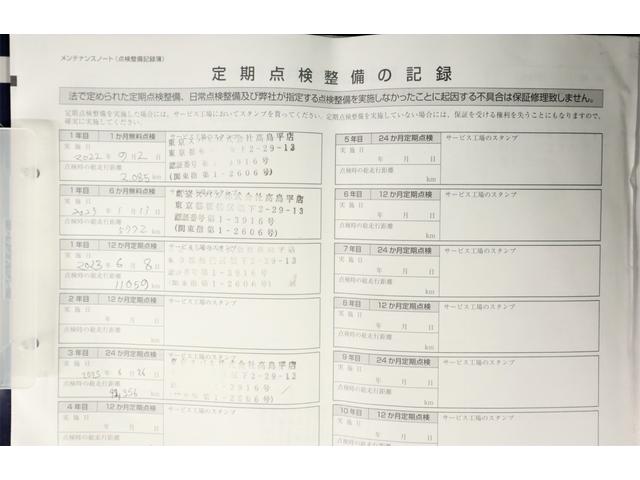 メンテナンスノート(点検整備記録簿)
定期点検整備の記録
法で定められた定期点検整備、日常点検整備及び弊社が指定する点検整備を実施しなかったことに起因する不具合は保証修理致しません。
定期点検整備を実施した場合には、サービス工場においてスタンプを貰ってください。定期点検整備を実施していない場合には、保証を受ける権利を失うこともなりますので、
確実に実施してください。
1年目 1か月無料点検
実施日
2022年9月2日
点検時の総走行距離
2,085km
高島平店
2-29-13
3916号
(関東指第1-2606号)
1年目 6か月無料点検 サービス工場のスタンプ
実施日
点検時の総走行距離
5772km
会社高島平店
下2-29-13
認証番号第1-3916号
(関東指第1-2606号)
1年目 12か月定期点検
実施日
2023年6月8日
点検時の総走行距離
11059km
2-29-13
2年目 12か月定期点検 サービス工場のスタンプ
実施日
年 月 日
点検時の総走行距離
km
3年目 24か月定期点検
実施日
2025年6月26日
点検時の総走行距離
km
株式会社高島平店
下2-29-13
-3916号
1-2606号)
4年目 12か月定期点検 サービス工場のスタンプ
実施日
年 月 日
5年目 24か月定期点検 サービス工場のスタンプ
実施日
年 月 日
点検時の総走行距離
km
6年目 12か月定期点検 サービス工場のスタンプ
実施日
年 月 日
点検時の総走行距離
km
7年目 24か月定期点検 サービス工場のスタンプ
実施日
年 月 日
点検時の総走行距離
km
8年目 12か月定期点検 サービス工場のスタンプ
実施日
年 月 日
点検時の総走行距離
km
9年目 24か月定期点検 サービス工場のスタンプ
実施日
年 月 日
点検時の総走行距離
km
10年目 12か月定期点検 サービス工場のスタンプ
実施日
年 月 日